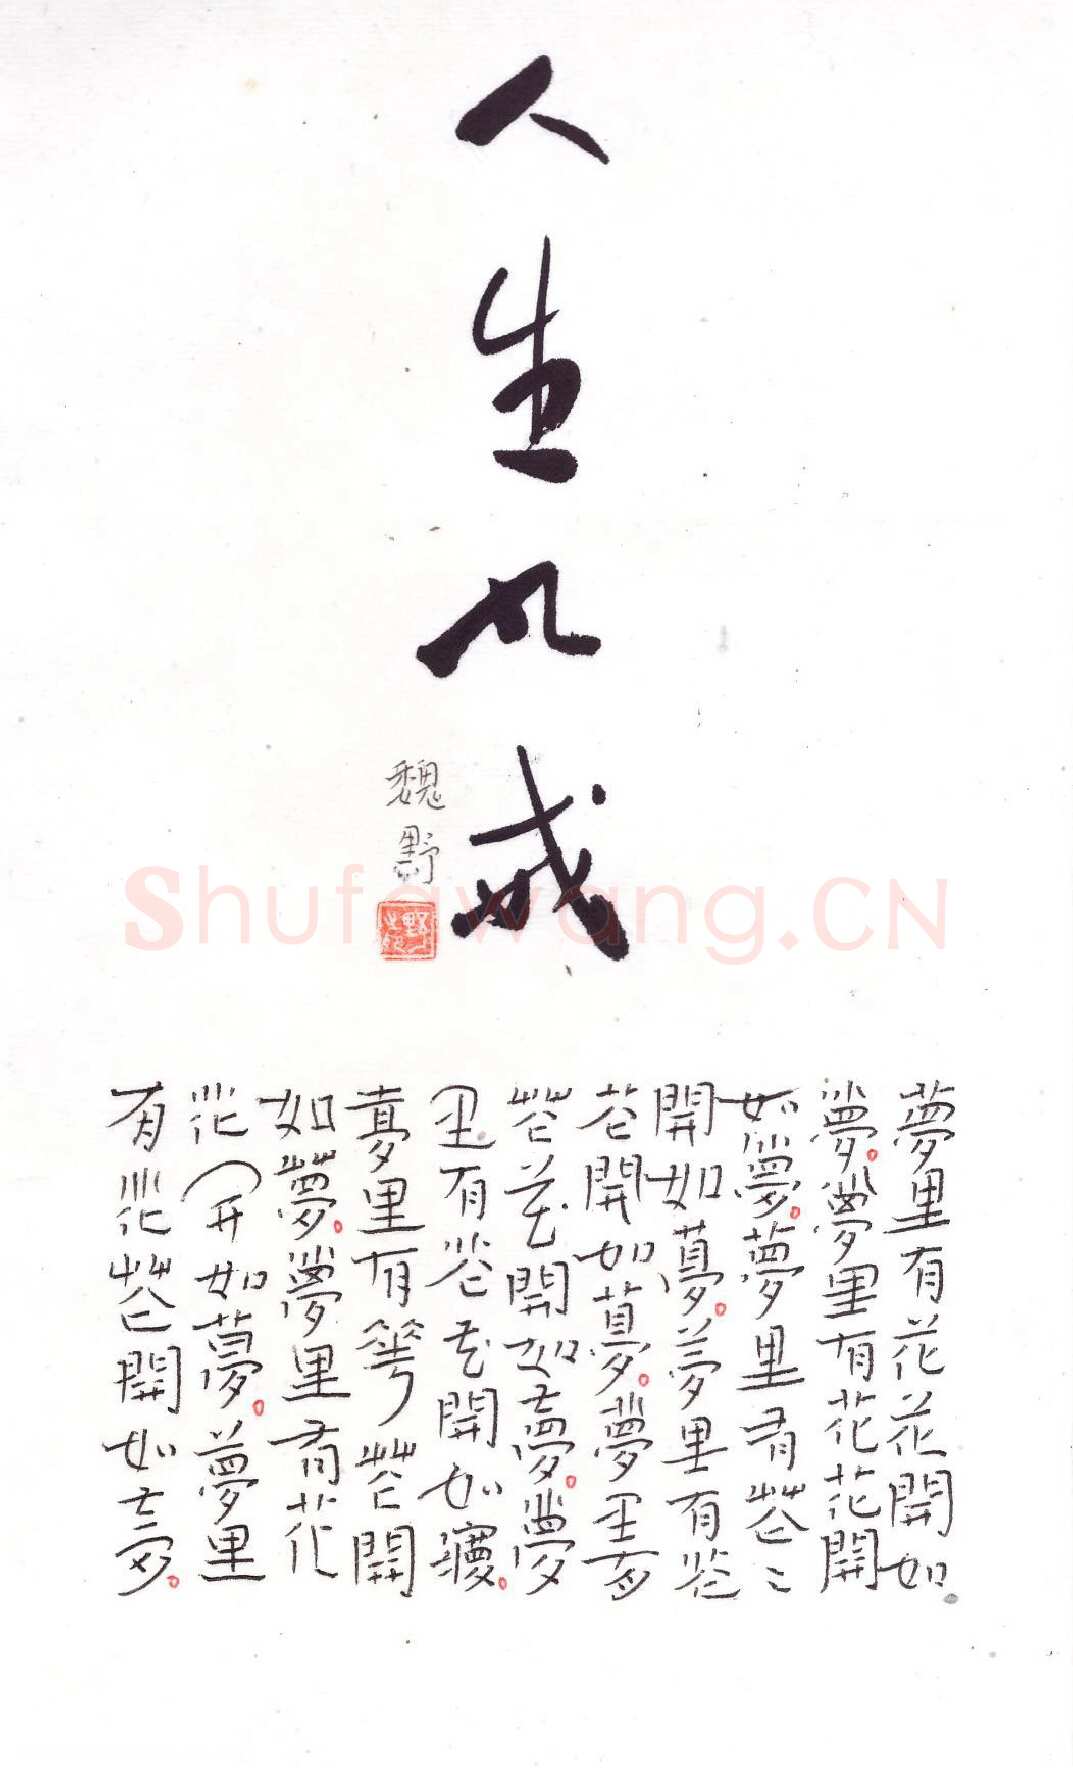 人生九戒
魏野
夢里有花花開如
夢。夢里有花花開
如夢。夢里有花〻
開如夢。夢里有花
花開如夢。夢里有
花花開如夢。夢
里有花花開如夢。
夢里有華花開
如夢。夢里有花
花開如夢。夢里
有花花開如夢。
Shufawang.CN